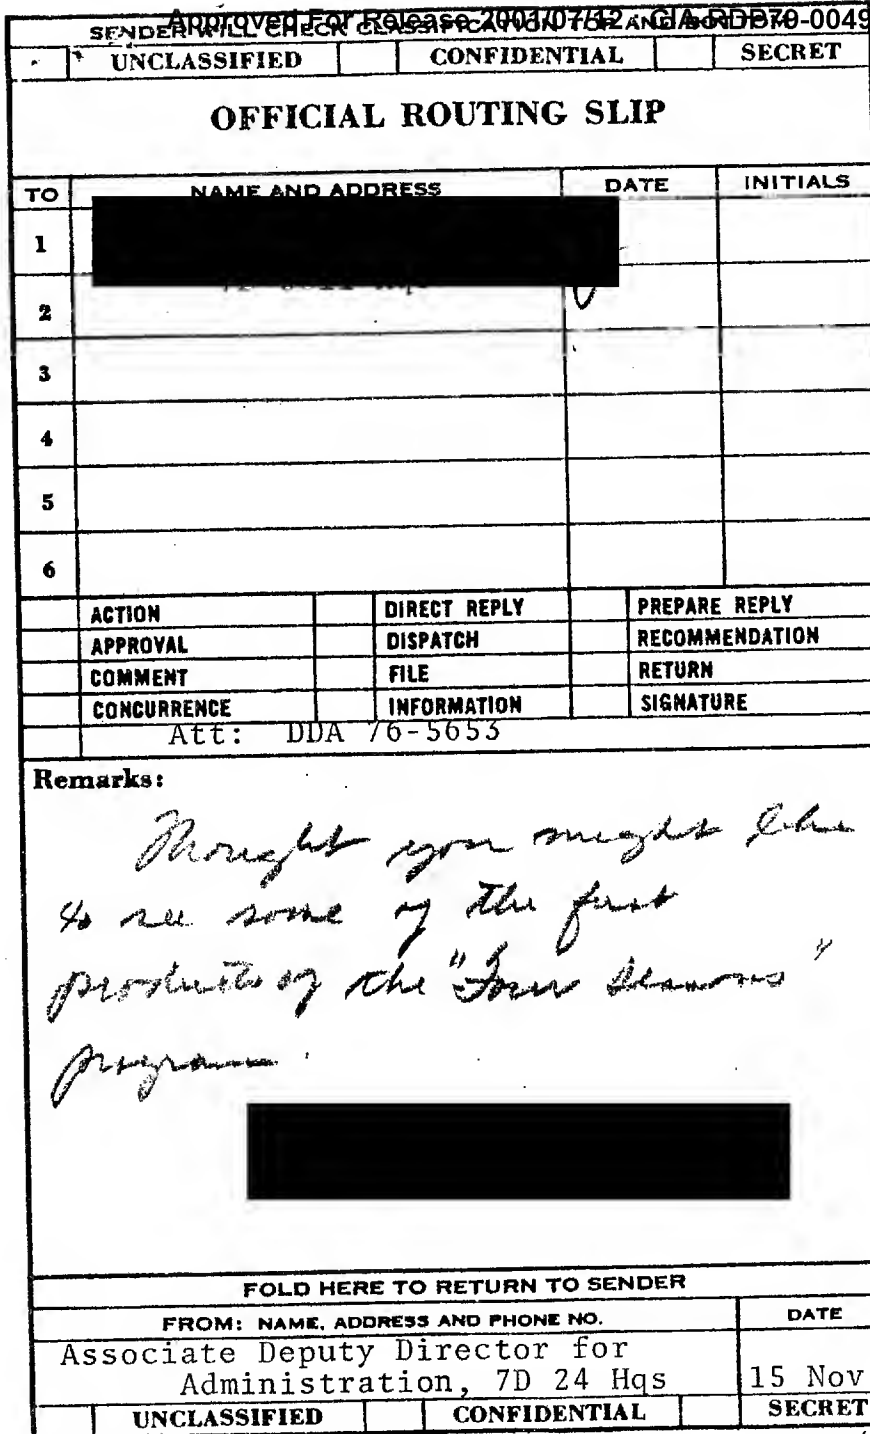 Approved For Release 2001/07/12 : CIA-RDP79-0049
SENDER WILL CHECK CLASSIFICATION TOP AND BOTTOM
UNCLASSIFIED CONFIDENTIAL SECRET
OFFICIAL ROUTING SLIP
TO NAME AND ADDRESS DATE INITIALS
1
2
3
4
5
6
ACTION DIRECT REPLY PREPARE REPLY
APPROVAL DISPATCH RECOMMENDATION
COMMENT FILE RETURN
CONCURRENCE INFORMATION SIGNATURE
Att: DDA 76-5653
Remarks:
Thought you might like
to see some of the first
products of the "Four Seasons"
program.
FOLD HERE TO RETURN TO SENDER
FROM: NAME, ADDRESS AND PHONE NO. DATE
Associate Deputy Director for
Administration, 7D 24 Hqs 15 Nov
UNCLASSIFIED CONFIDENTIAL SECRET